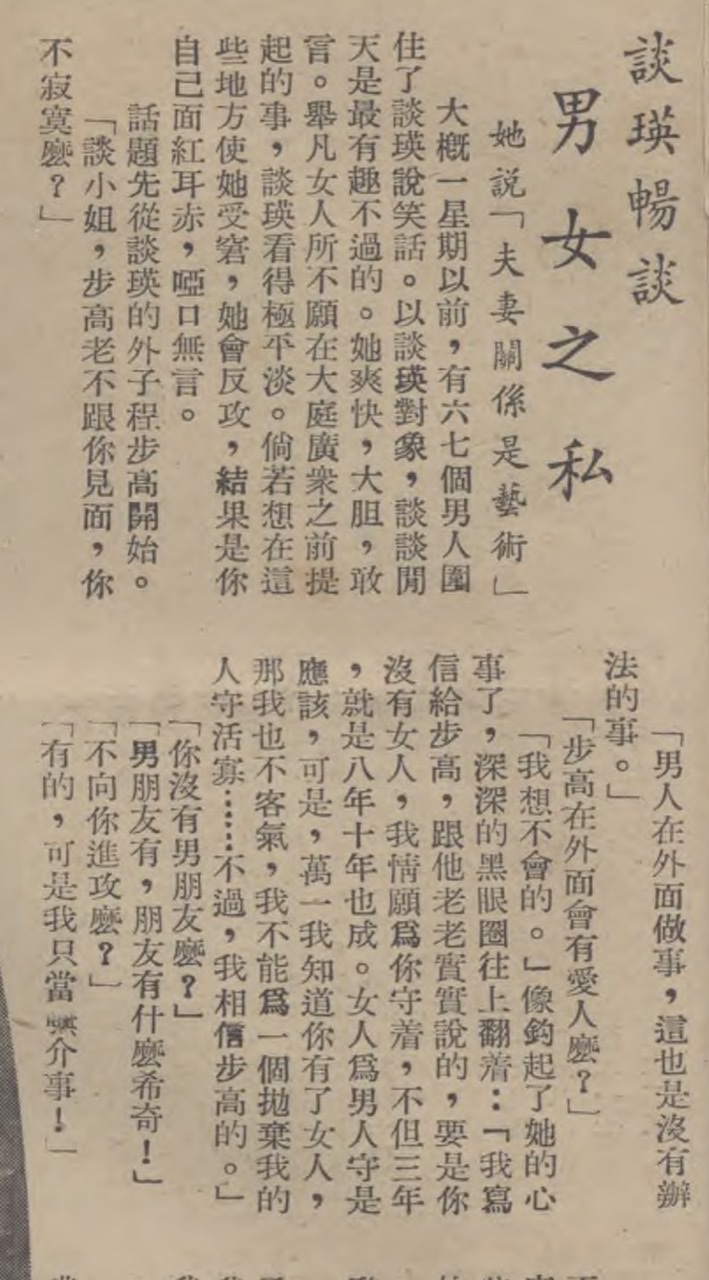 談瑛暢談
男女之私
她説「夫妻關係是藝術」
大概一星期以前，有六七個男人圍
住了談瑛說笑話。以談瑛對象，談談閒
天是最有趣不過的。她爽快，大胆，敢
言。舉凡女人所不願在大庭廣衆之前提
起的事，談瑛看得極平淡。倘若想在這
些地方使她受窘，她會反攻，結果是你
自己面紅耳赤，啞口無言。
話題先從談瑛的外子程步高開始。
「談小姐，步高老不跟你見面，你
不寂寞麼？」
「男人在外面做事，這也是沒有辦
法的事。」
「步高在外面會有愛人麼？」
「我想不會的。」像鈎起了她的心
事了，深深的黑眼圈往上翻着：「我寫
信給步高，跟他老老實實說的，要是你
沒有女人，我情願爲你守着，不但三年
，就是八年十年也成。女人爲男人守是
應該，可是，萬一我知道你有了女人，
那我也不客氣，我不能爲一個拋棄我的
人守活寡……不過，我相信步高的。」
「你沒有男朋友麼？」
「男朋友有，朋友有什麼希奇！」
「不向你進攻麼？」
「有的，可是我只當介事！」